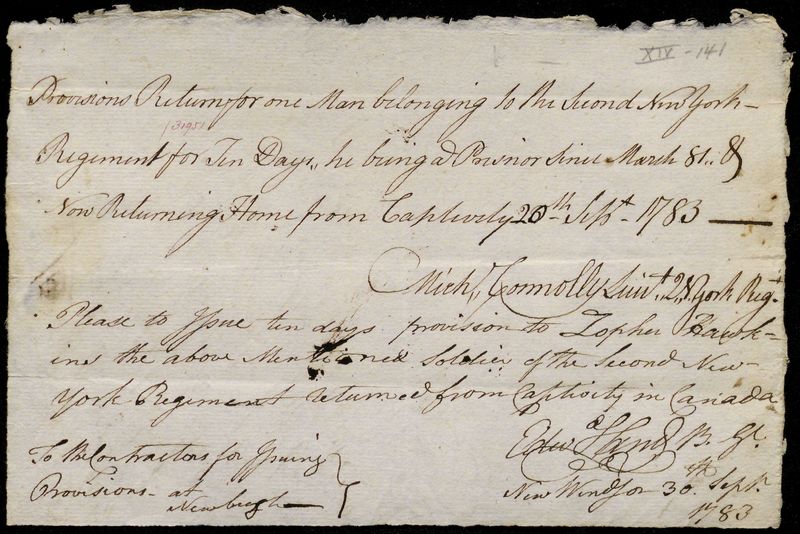 XIV-141
Provisions Return for one Man belonging to the Second New York-
(3195)
Regiment for Ten Days,, he being a Prisnor since March 81.. &
Now Returning Home from Captivety 20th Sept. 1783 —
Mich,, Connolly Liut. 2,, York Regt
Please to Issue ten days provision to Zopher Hawk=
ins the above Mentioned Soldier of the Second New-
York Regiment returned from Captivity in Canada
Edwd Hand B. Gl.
To the Contractors for Issuing
Provisions- at
Newburgh
New Windsor 30th Sept.
1783